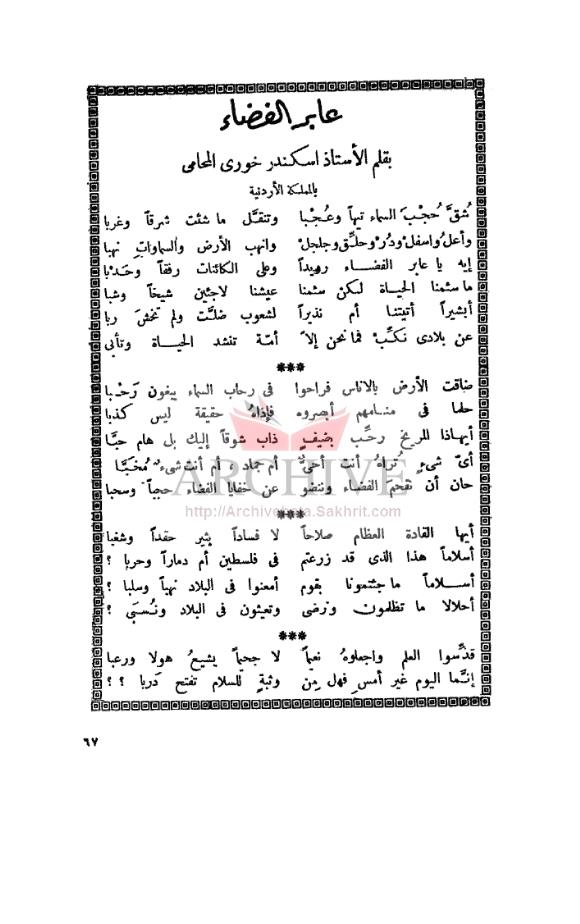 عابر الفضاء
بقلم الأستاذ اسكندر خورى المحامى
بالمملكة الأردنية
شُقَّ حُجْبَ السماء تيهاً وعُجْبا وتنقَّل ما شئت شرقاً وغربا
وأعلُ واسفل ودُر وحلِّق وجلجلْ وانهب الأرض والسماواتِ نهبا
إيه يا عابر الفضاء رويداً وعلى الكائنات رفقاً وحَدْبا
ما سئمنا الحياة لكن سئمنا عيشنا لاجئين شيخاً وشبا
أبشيراً أتيتنا أم نذيراً لشعوب ضلَّت ولم تخشَ ربا
عن بلادى نكِّبْ فما نحن إلاّ أمّة تنشد الحياة وتأبى
***
ضاقت الأرض بالاناس فراحوا فى رحاب السماء يبغون رَحْبا
حلما فى منامهم أبصروه فإذاه حقيقة ليس كذبا
أيهاذا المريخ رحِّب بضيفٍ ذاب شوقاً إليك بل هام حبَّا
أىّ شىءٍ تُراهُ أنت أحىٌّ أم جماد أم أنت شىء مُخبَّا
حان أن نقحم الفضاء وننضو عن خفايا الفضاء حجباً وسحبا
ARCHIVE
http://Archivebeta.Sakhrit.com
***
أيها القادة العظام صلاحاً لا فساداً يثير حقداً وشغبا
أسلاماً هذا الذى قد زرعتم فى فلسطين أم دماراً وحربا ؟
أسلاماً ما جئتمونا بقوم أمعنوا فى البلاد نهباً وسلبا ؟
أحلالا ما تظلمون ونرضى وتعيثون فى البلاد ونُسبَى ؟
***
قدِّسوا العلم واجعلوهُ نعيماً لا جحيماً يشيعُ هولا ورعبا
إنَّما اليوم غير أمسِ فهل مِن وثبةٍ للسلام تفتح دَربا ؟ ؟
٦٧